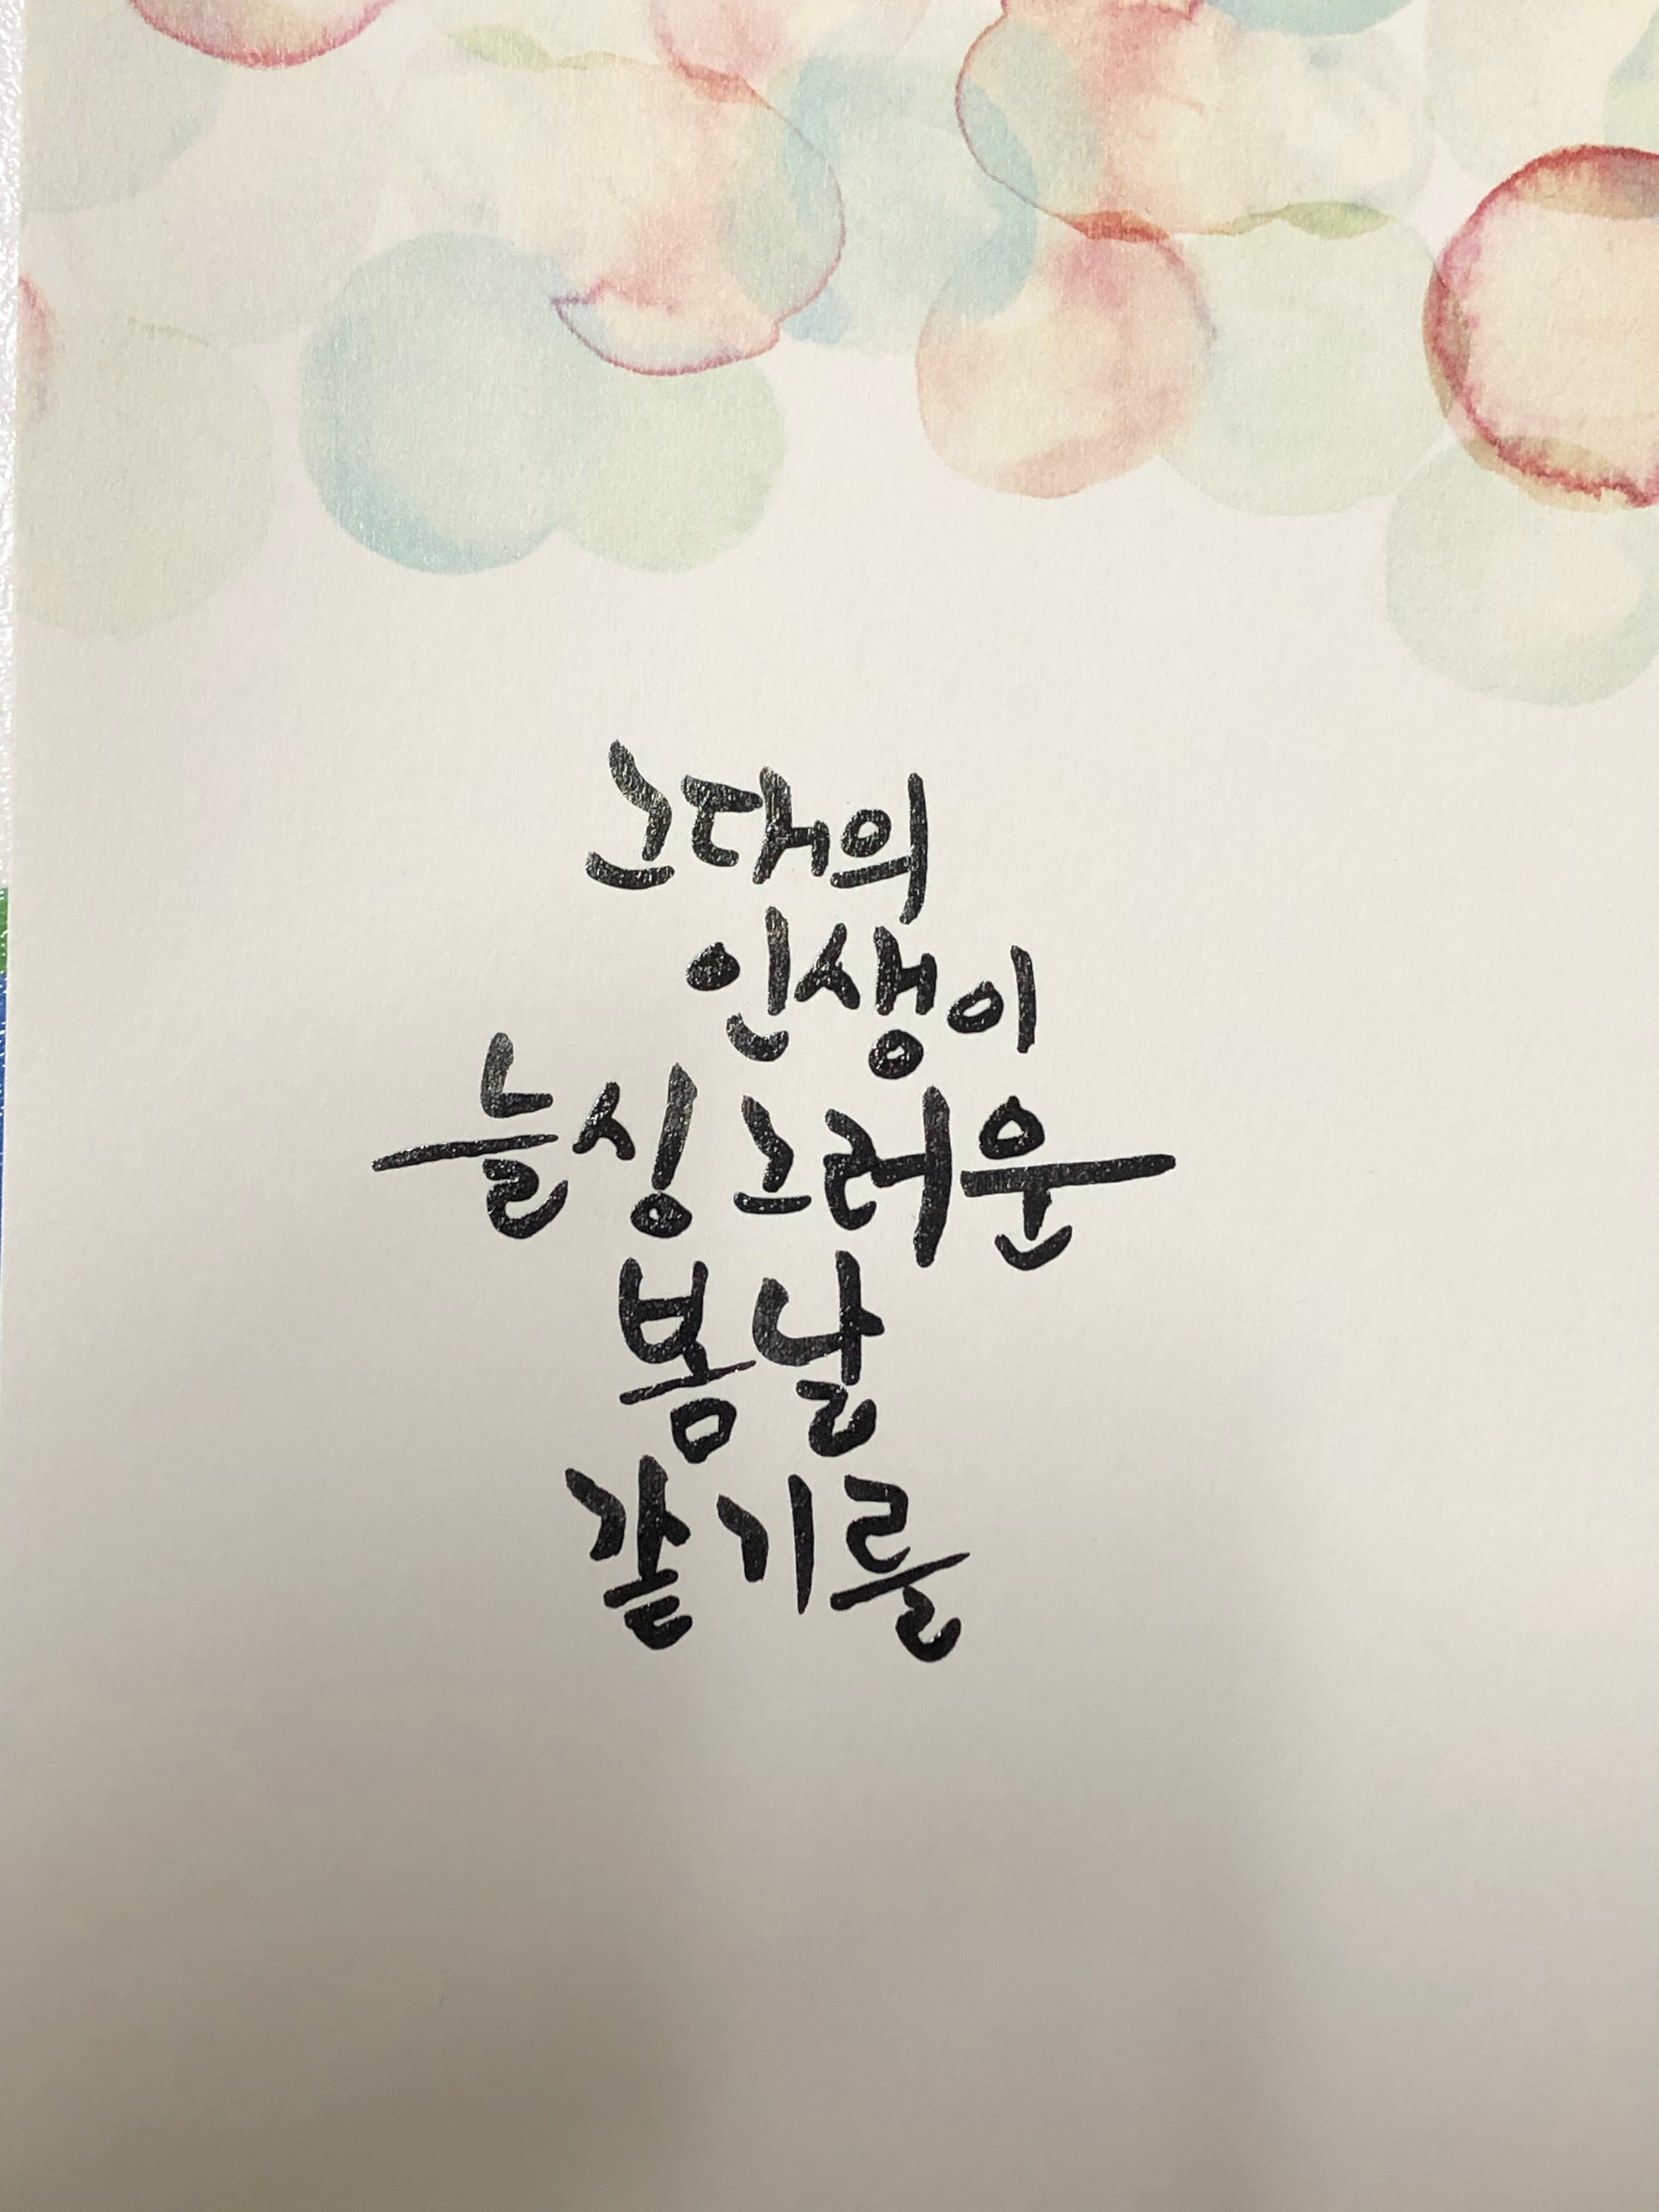 그대의
인생이
늘 싱그러운
봄날
같기를